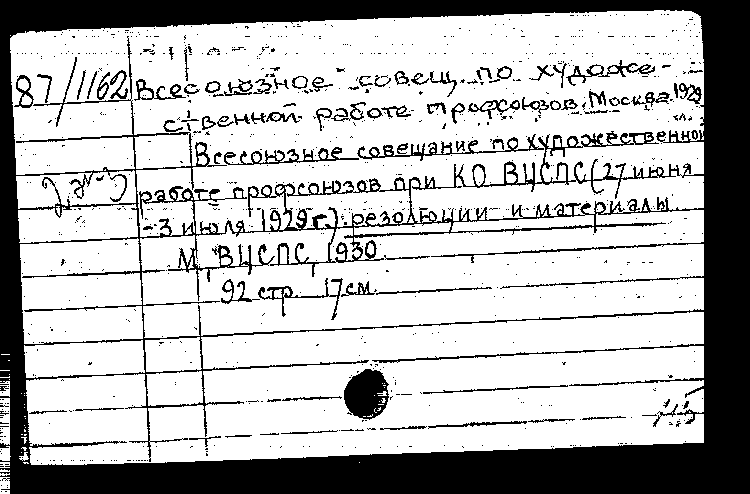 87/1162 Всесоюзное совещ. по художе-
ственной работе профсоюзов. Москва 1929
Всесоюзное совещание по художественной
2 экз
работе профсоюзов при КО ВЦСПС (27 июня
-3 июля 1929 г.). резолюции и материалы.
М, ВЦСПС, 1930.
92 стр. 17 см.